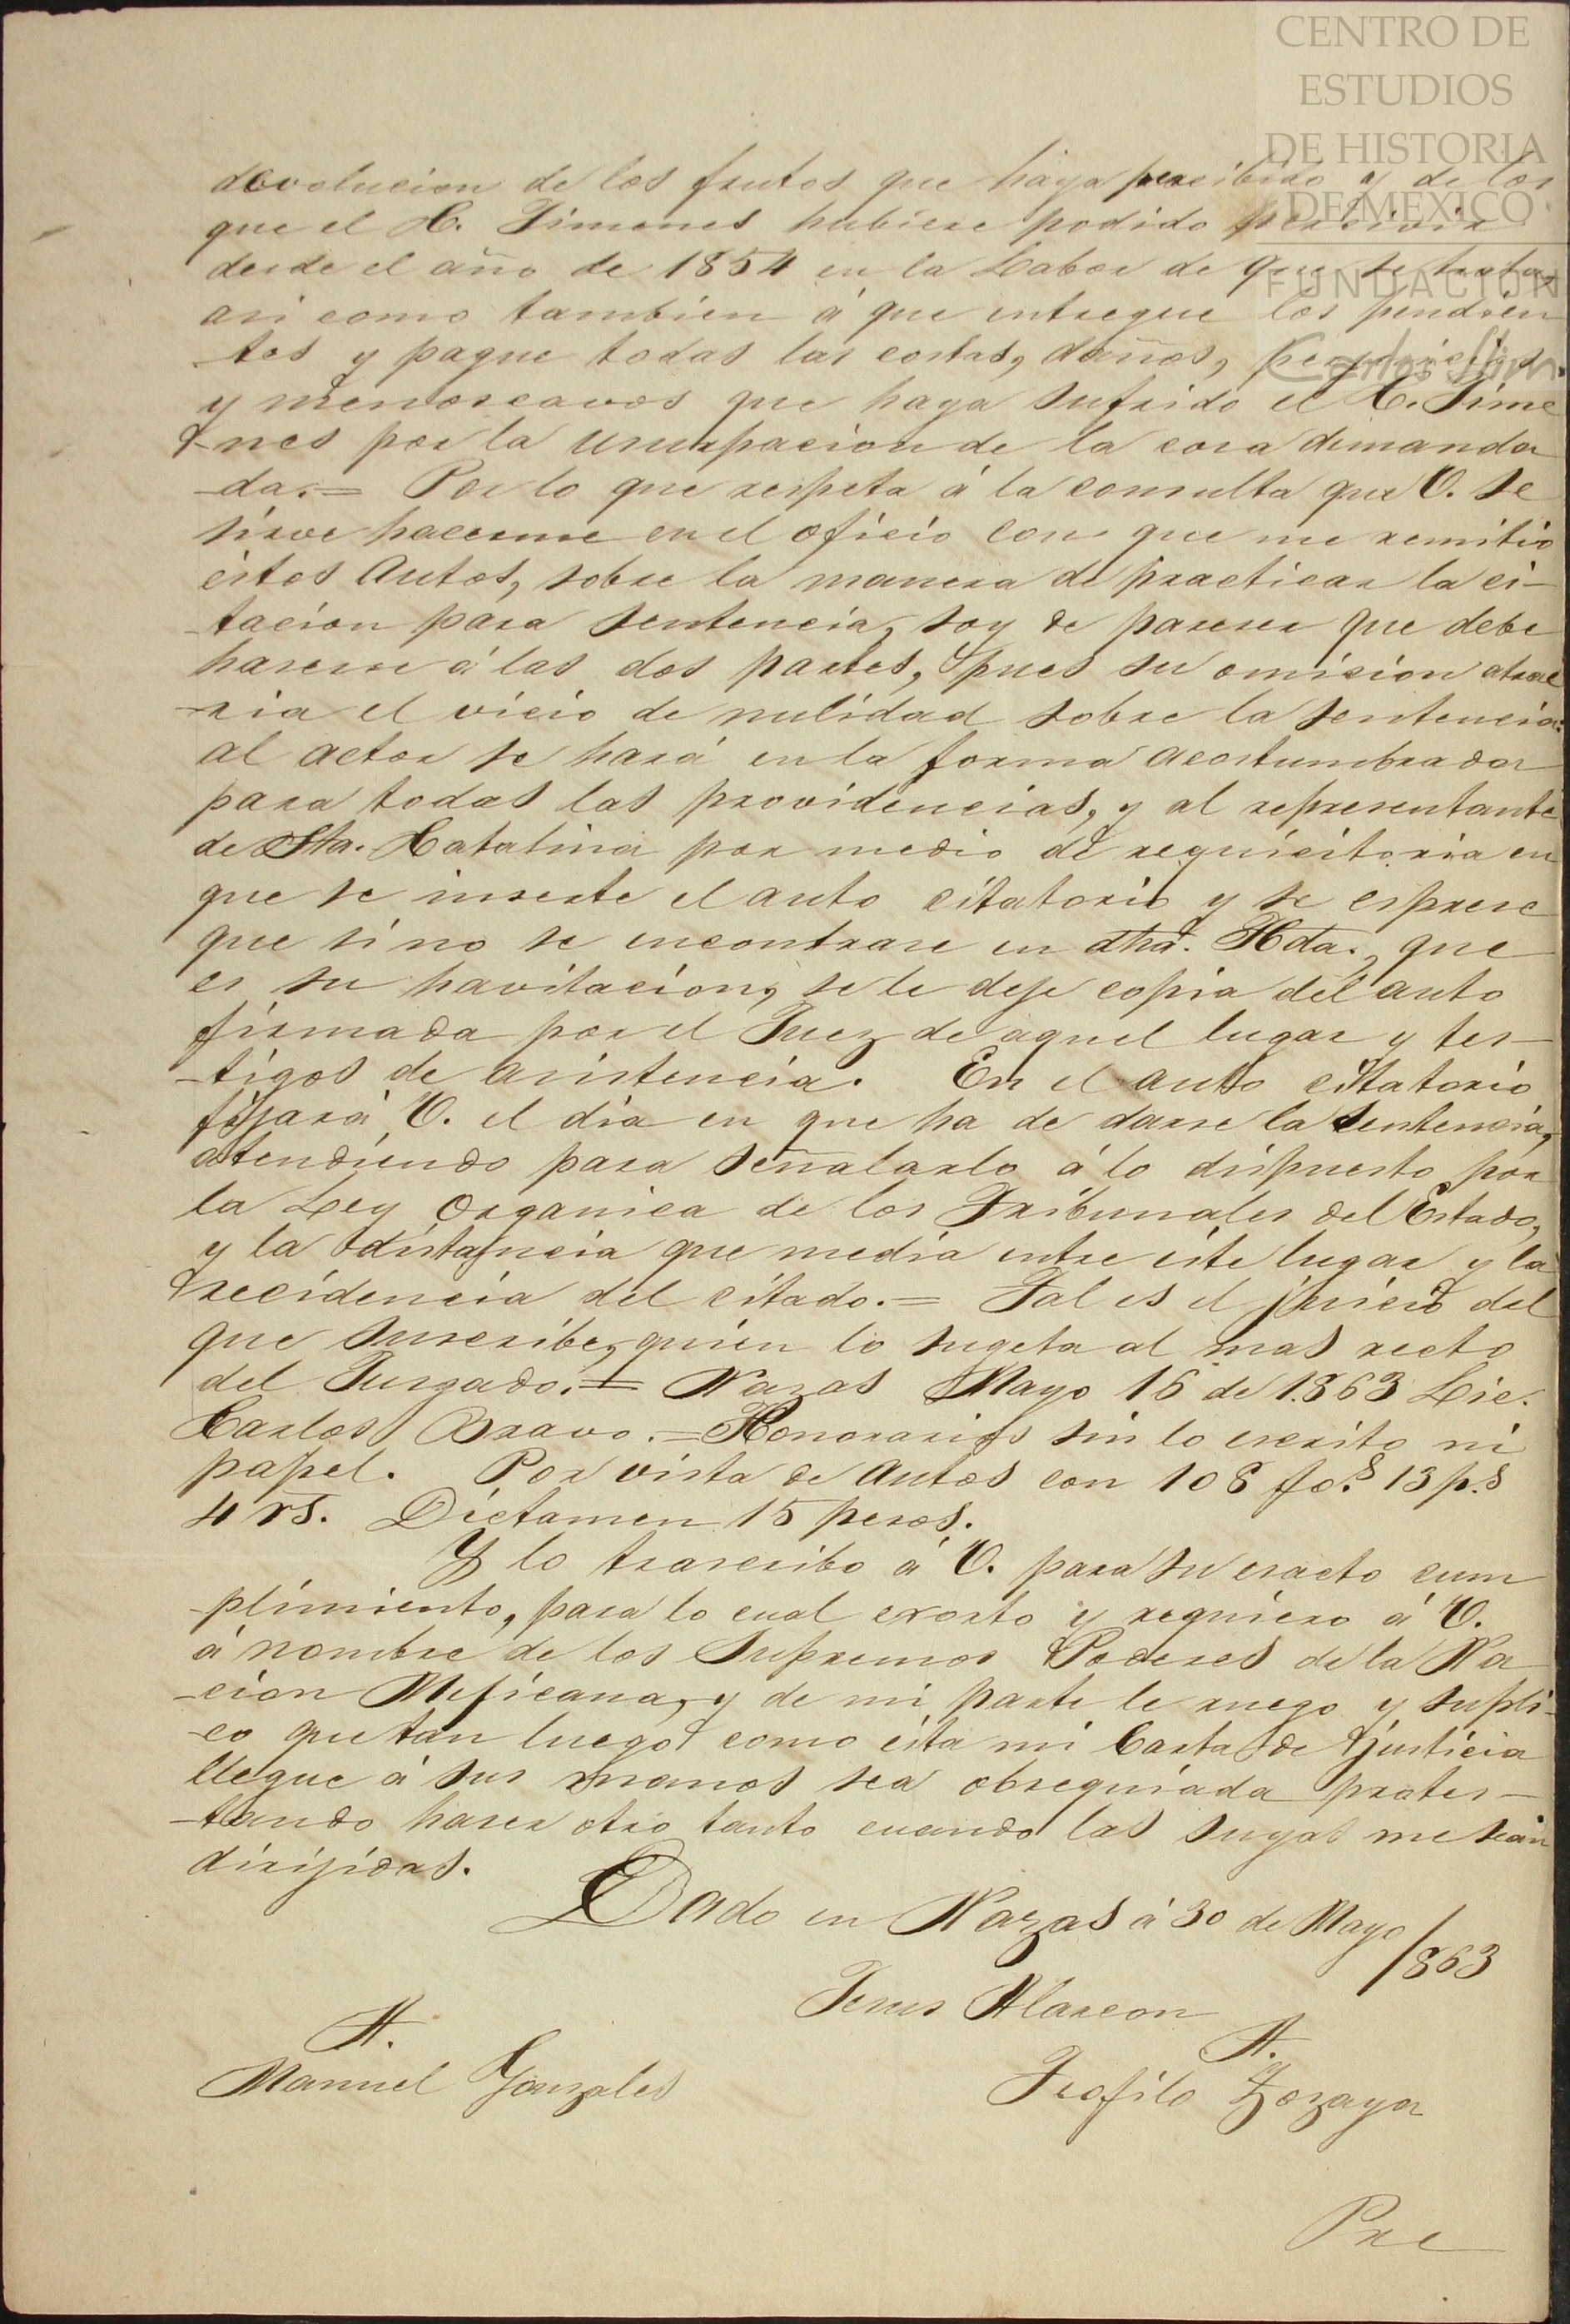 CENTRO DE
ESTUDIOS
DE HISTORIA
DE MEXICO
FUNDACION
Carlos Slim
devolucion de los frutos que haya percibido y de los
que el C. Jimenes hubiere podido percivir
desde el año de 1854 en la Labor de que se trata,
asi como tambien á que entregue los pendien
tes y pague todas las costas, daños, perjuicios
y menoscavos que haya sufrido el C. Jime
nes por la usurpacion de la cosa demanda
-da.= Por lo que respeta á la consulta que V. se
sirve hacerme en el oficio con que me remitió
estos Autos, sobre la manera de practicar la ci-
-tacion para sentencia, soy de parecer que debe
hacerse á las dos partes, pues su omicion atrae
-ria el vicio de nulidad sobre la sentencia:
al actor se hará en la forma acostumbrada
para todas las providencias, y al representante
de Sta. Catalina por medio de requicitoria en
que se inserte el auto citatorio y se esprese
que si no se encontrare en dha. Hda., que
es su havitacion, se le deje copia del auto
firmada por el Juez de aquel lugar y tes-
-tigos de asistencia. En el auto citatorio
fijará V. el dia en que ha de darse la sentencia,
atendiendo para señalarlo á lo dispuesto por
la Ley Organica de los Tribunales del Estado,
y la distancia que media entre este lugar y la
recidencia del citado.= Tal es el juicio del
que suscribe, quien lo sugeta al mas recto
del Jusgado.= Nazas Mayo 16 de 1863 Lic.
Carlos Bravo.= Honorarios sin lo escrito ni
papel. Por vista de Autos con 108 fo.s 13 p.s
4 rs. Dictamen 15 pesos.
Y lo trascribo á V. para su esacto cum
-plimiento, para lo cual exorto y requiero á V.
á nombre de los Supremos Poderes de la Na
-cion Mejicana, y de mi parte le ruego y supli-
-co que tan luego como esta mi Carta de justicia
llegue á sus manos sea obsequiada protes-
-tando haser otro tanto cuando las suyas me sean
dirijidas.
Dado en Nazas á 30 de Mayo
/863
Jesus Alarcon
A.
A.
Manuel Gonzales
Teofilo Zozaya
Pre